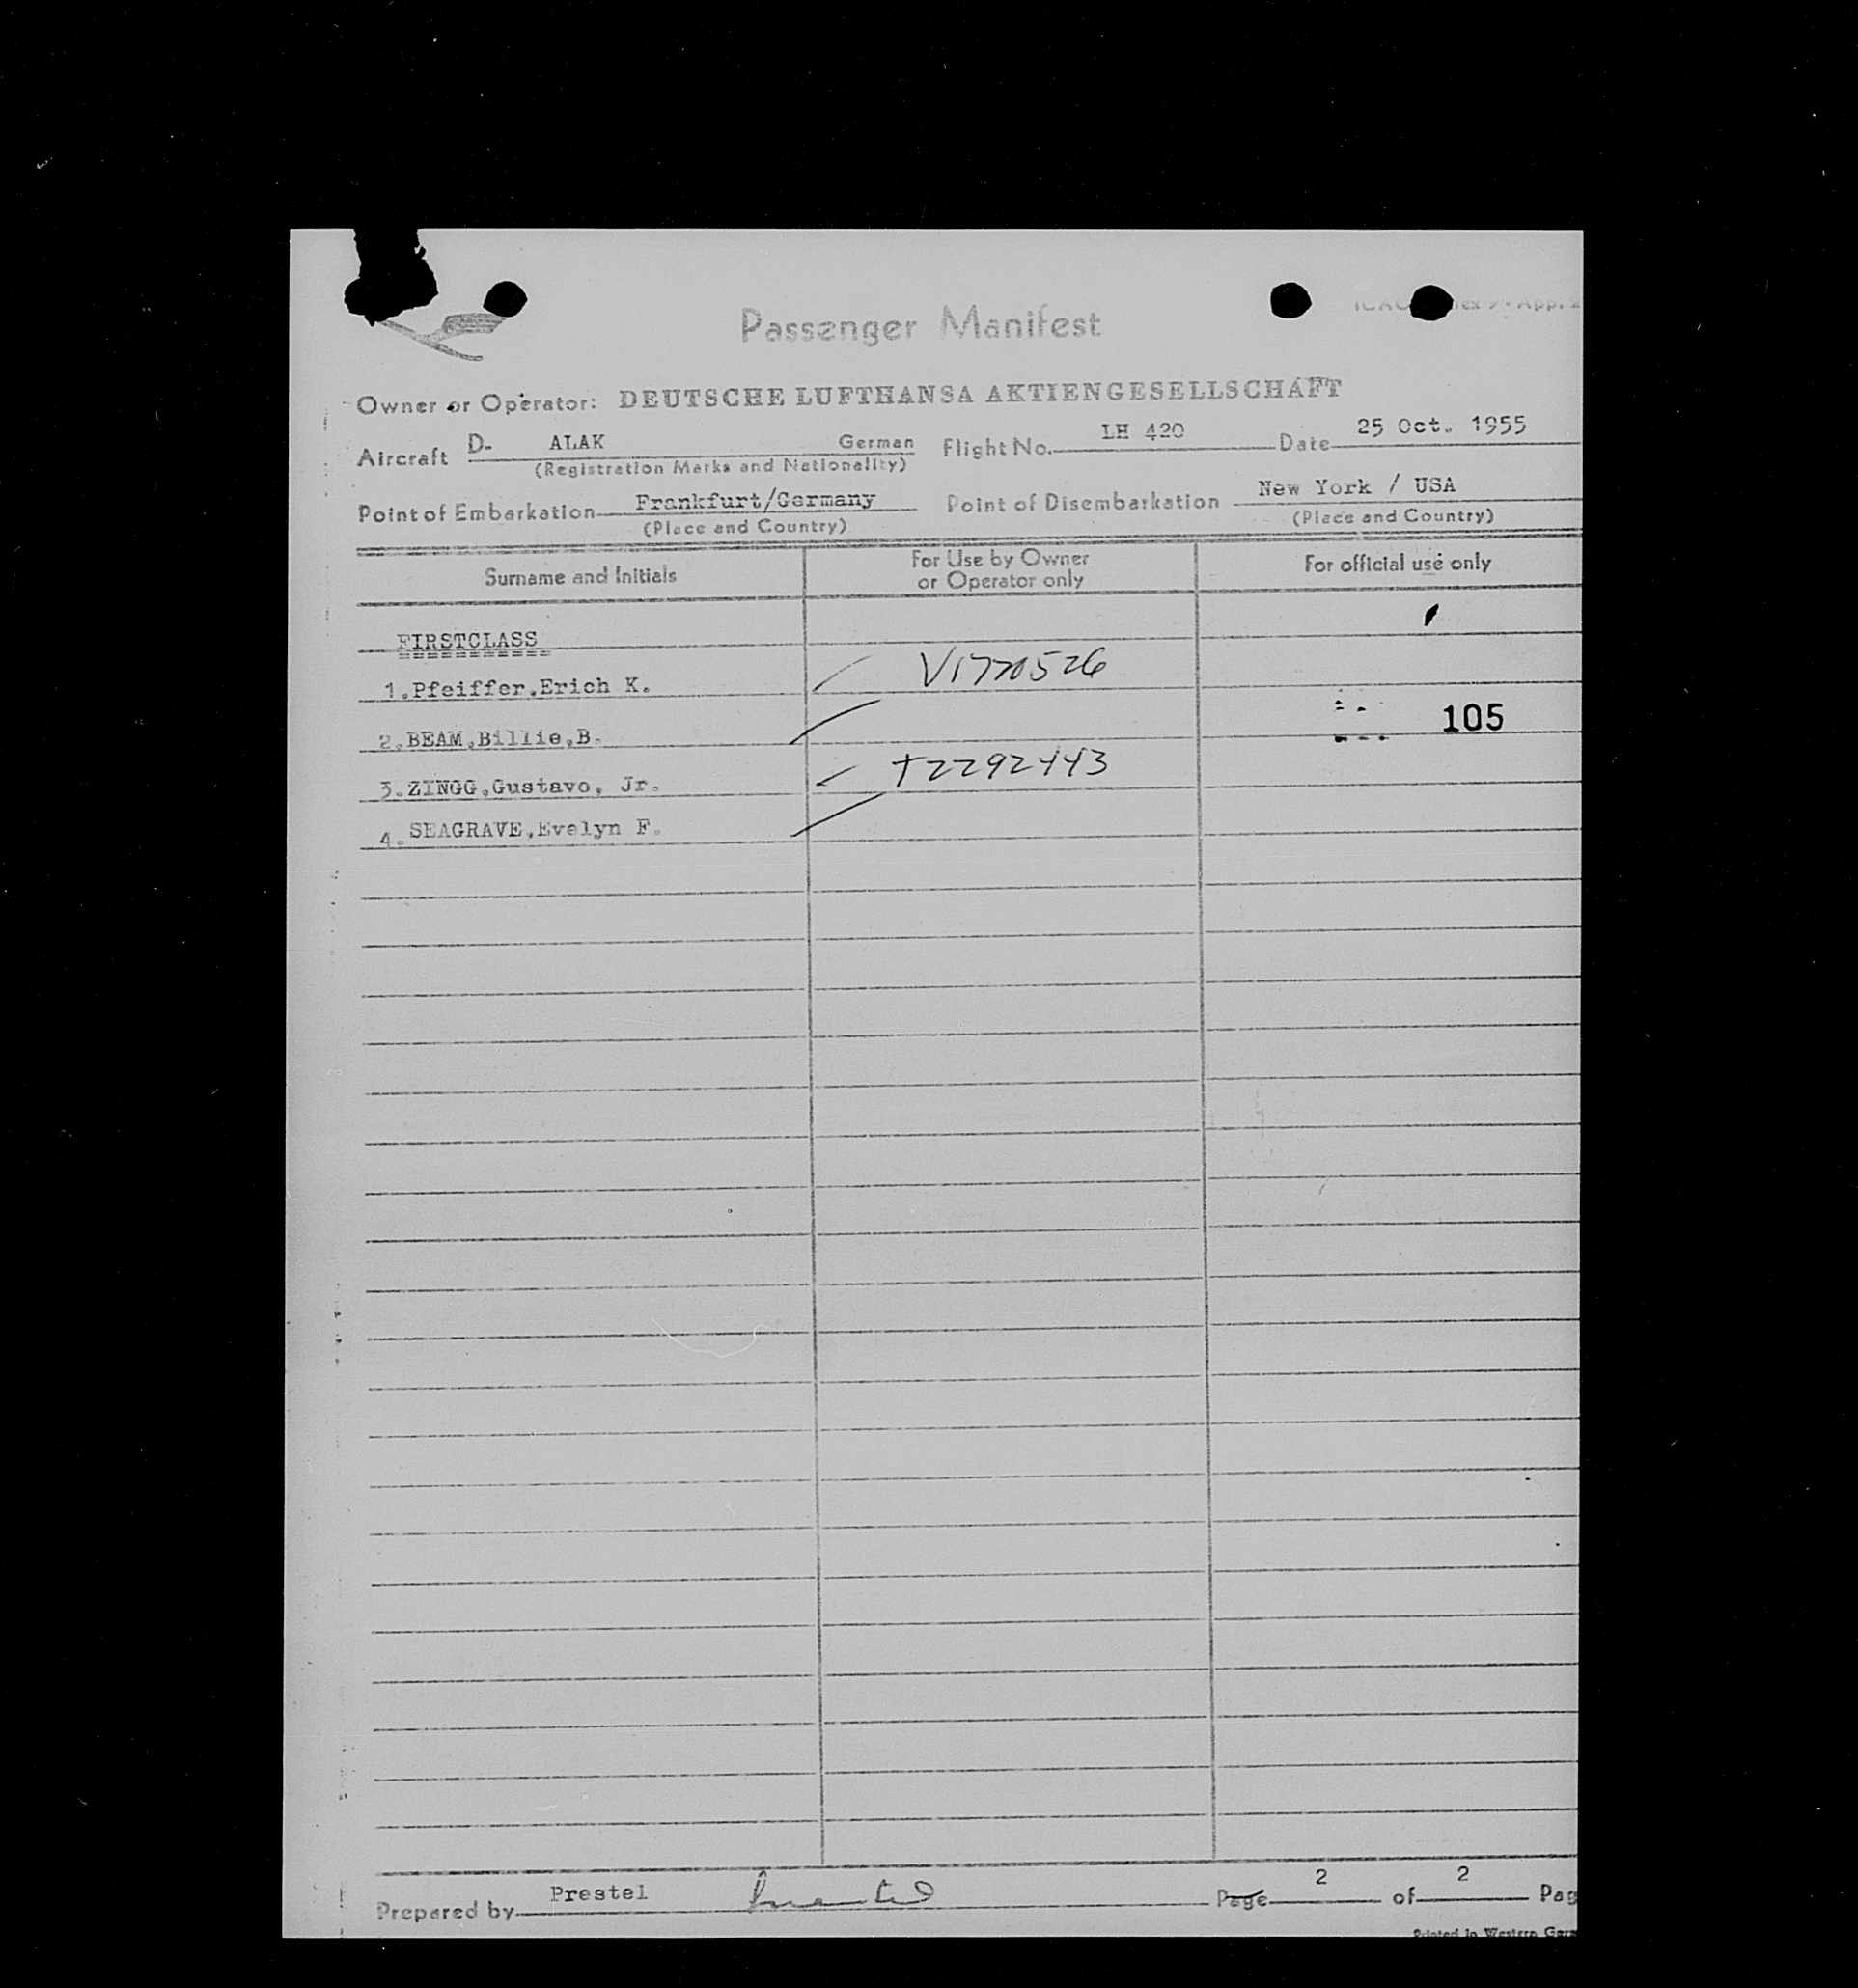 Passenger Manifest
Owner or Operator: DEUTSCHE LUFTHANSA AKTIENGESELLSCHAFT
Aircraft D- ALAK German Flight No. LH 420 Date 25 Oct. 1955
(Registration Marks and Nationality)
Point of Embarkation Frankfurt/Germany Point of Disembarkation New York / USA
(Place and Country) (Place and Country)
Surname and Initials For Use by Owner or Operator only For official use only
FIRSTCLASS
1.Pfeiffer.Erich K. V1770526
2.BEAM,Billie,B. 105
3.ZINGG,Gustavo, Jr. T2292443
4.SEAGRAVE,Evelyn F.
Prepared by Prestel Prestel Page 2 of 2 Pag
Printed in Western